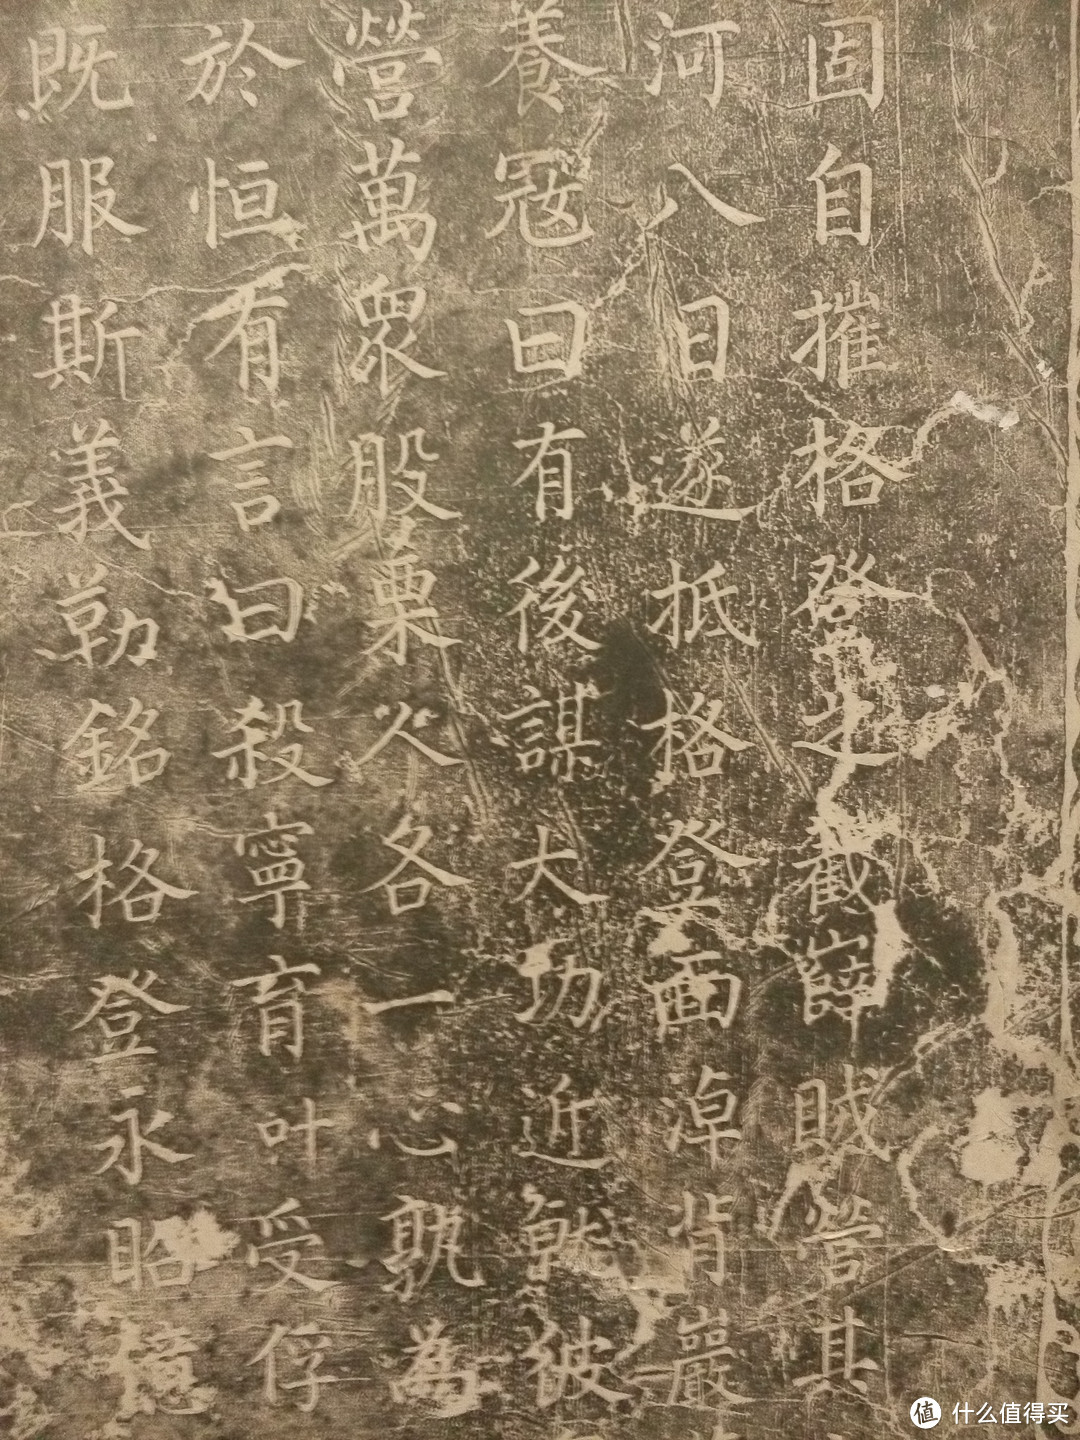 固自摧格登之截嶭賊營其
河入目遂抵格登面淖背巖
養寇曰有後謀大功近就彼
營萬衆股栗人各一心孰為
於恒有言曰殺寧育叶受俘
既服斯義勒銘格登永昭億
值 什么值得买